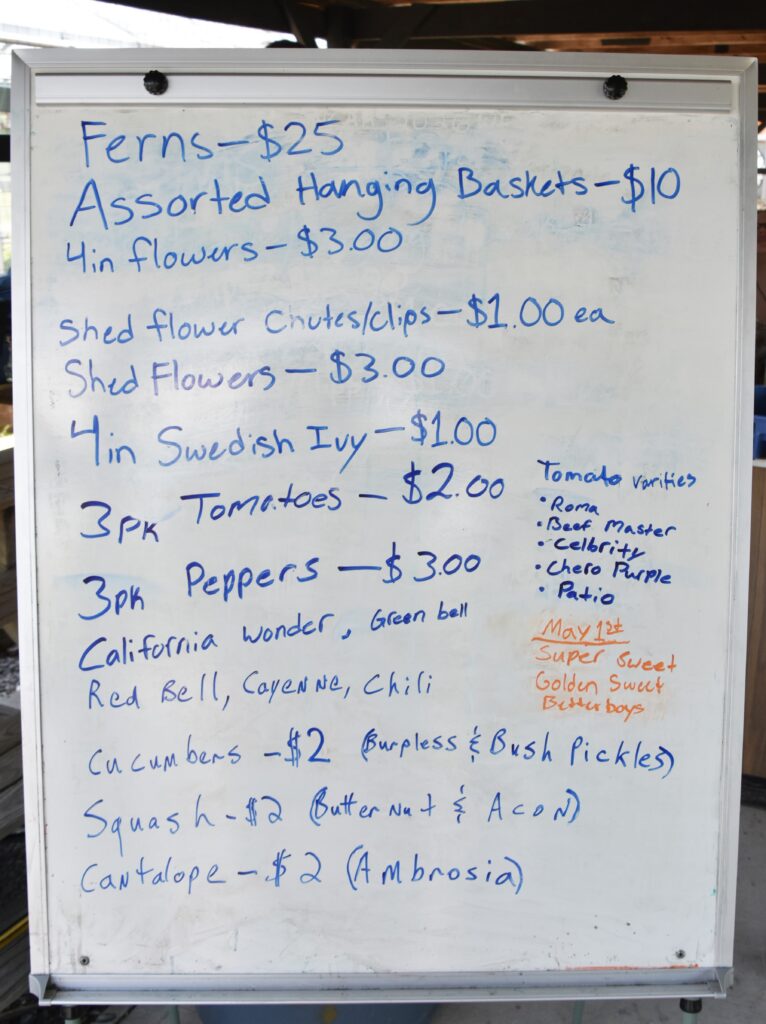 Ferns - $25
Assorted Hanging Baskets - $10
4in flowers - $3.00
Shed flower Chutes/Clips - $1.00 ea
Shed Flowers - $3.00
4in Swedish Ivy - $1.00
3pk Tomatoes - $2.00
3pk Peppers - $3.00
California wonder, Green bell
Red Bell, Cayenne, Chili
Cucumbers - $2 (Burpless & Bush Pickles)
Squash - $2 (Butter Nut & Acon)
Cantalope - $2 (Ambrosia)
Tomato varities
• Roma
• Beef Master
• Celbrity
• Chero Purple
• Patio
May 1st
Super Sweet
Golden Sweet
Better boys